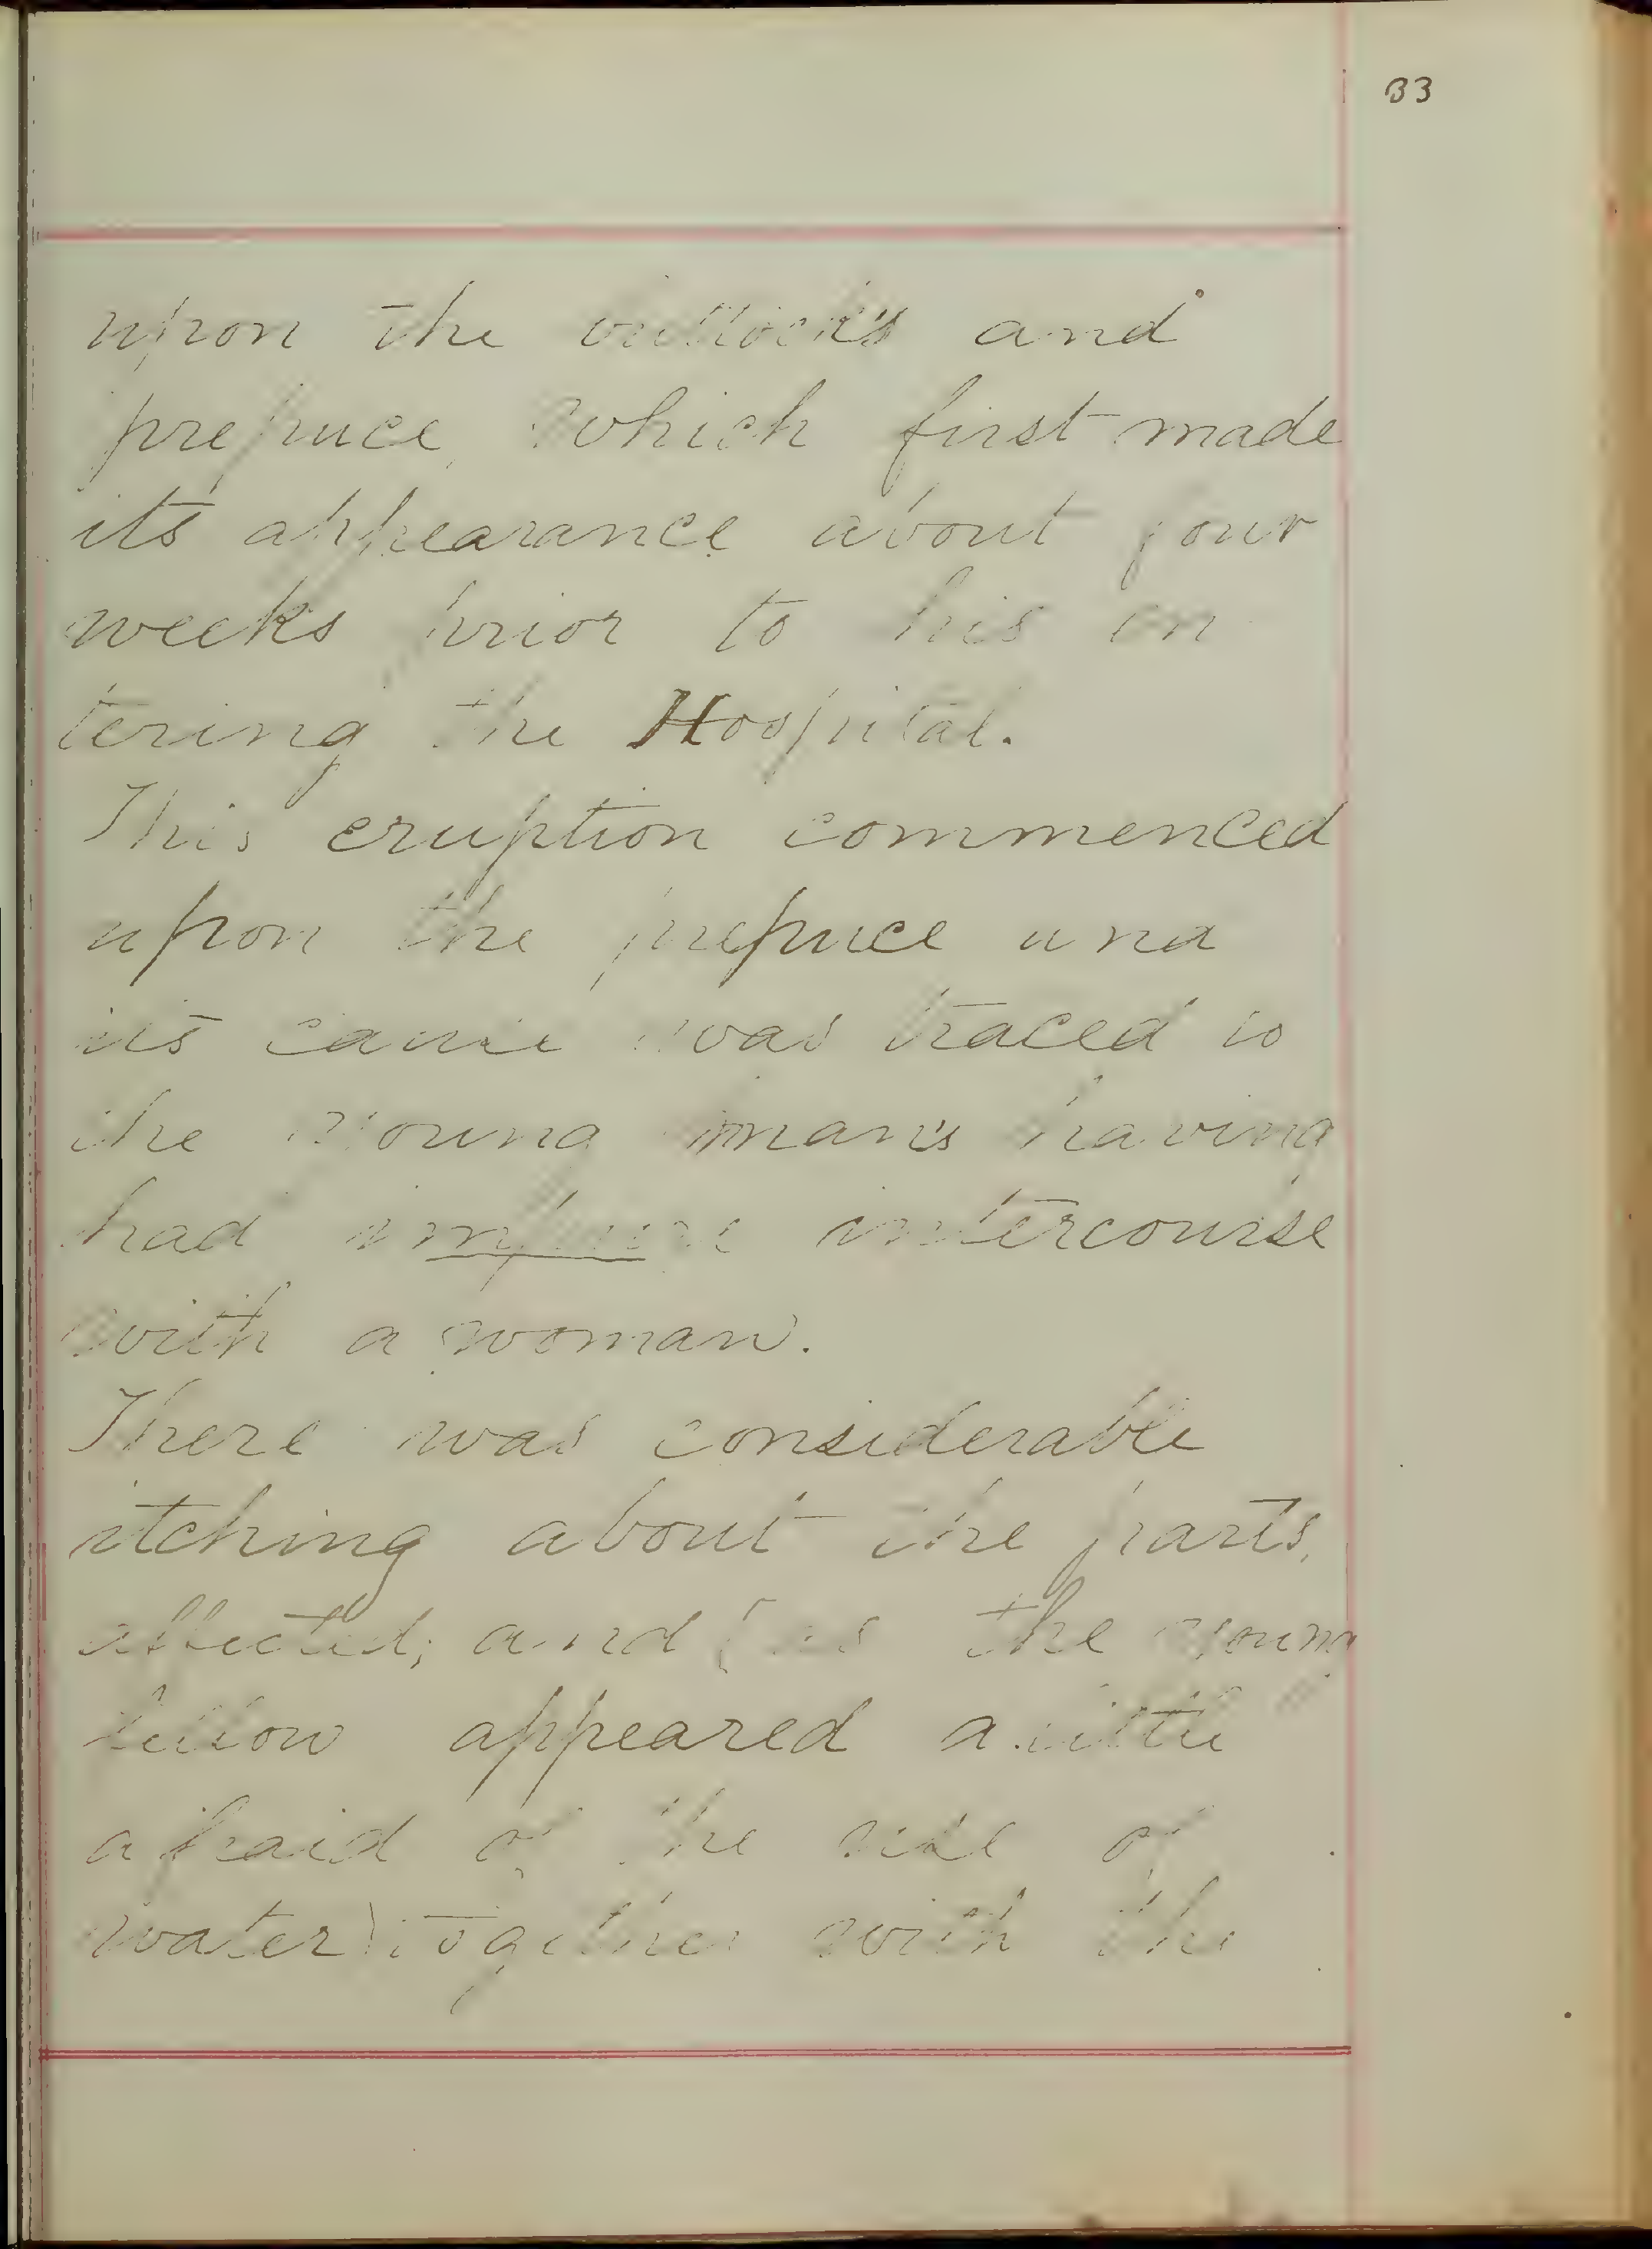 33
upon the buttocks and
prepuce, which first made
its appearance about four
weeks prior to his en
tering the Hospital.
This eruption commenced
upon the prepuce and
its cause was traced to
the young man's having
had impure intercourse
with a woman.
There was considerable
itching about the parts,
affected; and (as the young
fellow appeared a little
afraid of the use of
water) together with the